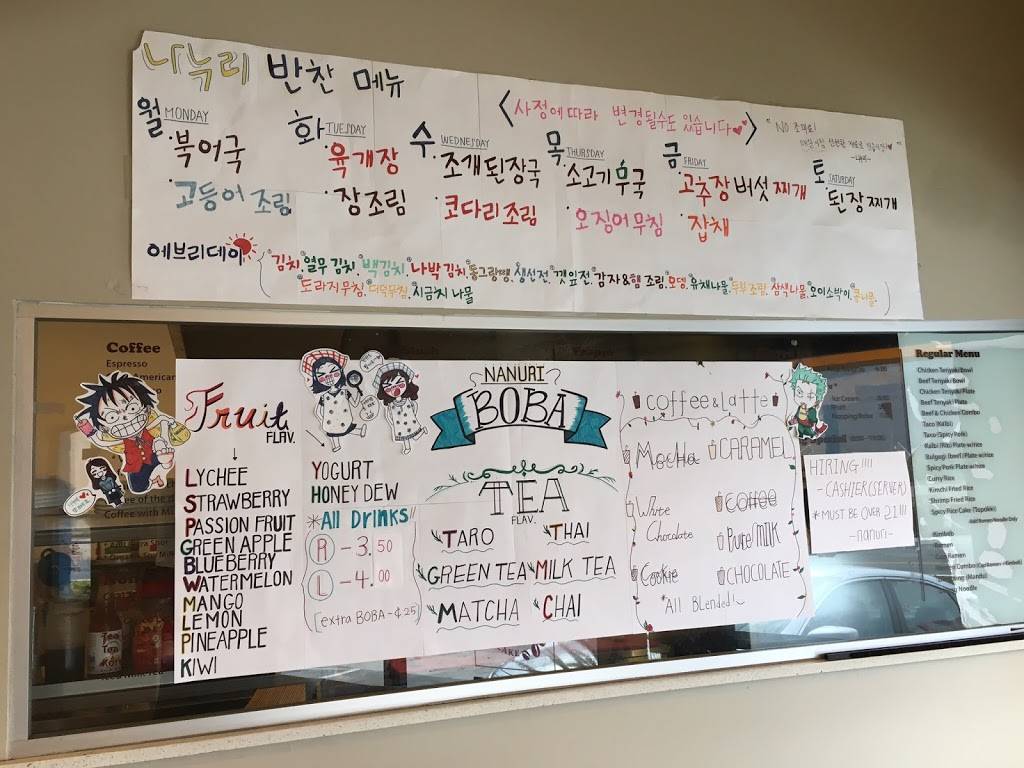 나누리 반찬 메뉴
<사정에따라 변경될수도 있습니다>
" NO 조미료!
월 MONDAY
·북어국
·고등어 조림
화 TUESDAY
·육개장
·장조림
수 WEDNESDAY
·조개된장국
·코다리조림
목 THURSDAY
·소고기무국
·오징어무침
금 FRIDAY
·고추장버섯찌개
·잡채
토 SATURDAY
·된장찌개
에브리데이
(김치, 열무 김치, 백김치, 나박 김치, 동그랑땡, 생선전, 깻잎전, 감자&햄 조림, 오뎅, 유채나물, 두부 조림, 삼색나물, 오이소박이, 콩나물,
도라지무침, 더덕무침, 시금치 나물)
Coffee
Espresso
Coffee with
Fruit
FLAV.
LYCHEE
STRAWBERRY
PASSION FRUIT
GREEN APPLE
BLUEBERRY
WATERMELON
MANGO
LEMON
PINEAPPLE
KIWI
YOGURT
HONEY DEW
*All Drinks!!
R - 3.50
L - 4.00
[extra BOBA - ¢25]
NANURI
BOBA
TEA
FLAV.
TARO
THAI
GREEN TEA
MILK TEA
MATCHA
CHAI
COFFEE & LATTE
Mocha
CARAMEL
White Chocolate
Coffee
Pure MILK
Cookie
CHOCOLATE
*All BLended!
HIRING!!!!
- CASHIER(SERVER)
*MUST BE OVER 21!!!
-nanuri-
Regular Menu
Chicken Teriyaki Bowl
Beef Teriyaki Bowl
Chicken Teriyaki Plate
Beef Teriyaki Plate
Beef & Chicken Combo
Taco (Kalbi)
Taco (Spicy Pork)
Kalbi (Rib) Plate w/rice
Bulgogi (beef) Plate w/rice
Spicy Pork Plate w/rice
Curry Rice
Kimchi Fried Rice
Shrimp Fried Rice
Spicy Rice Cake (Tupokki)
Add Ramen Noodle Only
Kimbab
Ramen
Noodle